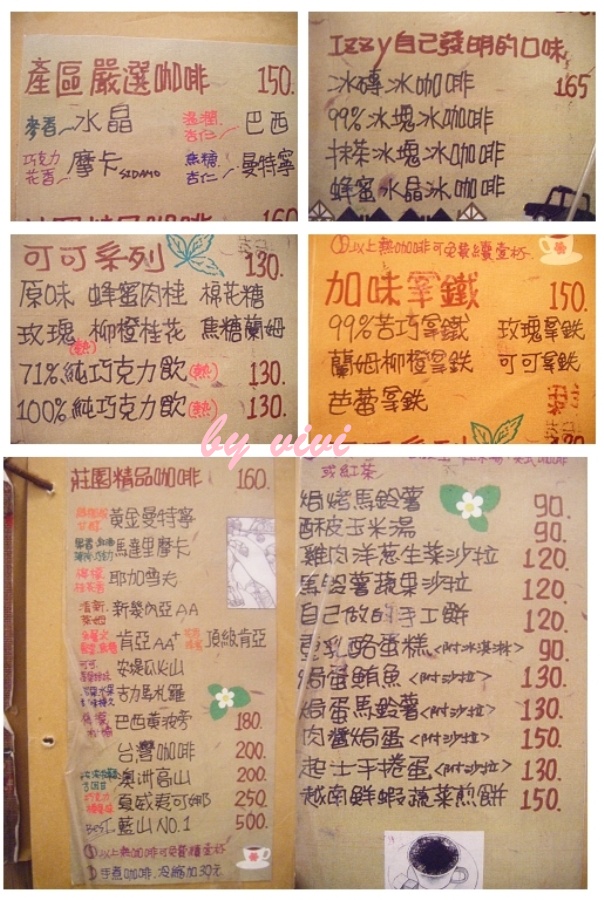 產區嚴選咖啡 150.
麥香 水晶 溫潤杏仁 巴西
巧克力花香 摩卡 SIDAMO 焦糖杏仁 曼特寧
160
Izzy自己發明的口味
冰磚冰咖啡 165
99%冰塊冰咖啡
抹茶冰塊冰咖啡
蜂蜜水晶冰咖啡
可可系列 130.
原味 蜂蜜肉桂 棉花糖
玫瑰(熱) 柳橙桂花 焦糖蘭姆
71%純巧克力飲(熱) 130.
100%純巧克力飲(熱) 130.
①以上熱咖啡可免費續壹杯.
加味拿鐵 150.
99%苦巧拿鐵 玫瑰拿鉄
蘭姆柳橙拿鉄 可可拿鉄
芭蕾拿鉄
by vivi
莊園精品咖啡 160.
黃金曼特寧
馬達里摩卡
檸檬桂花香 耶加雪夫
清新萊姆 新幾內亞AA
肯亞AA+ 頂級肯亞
安堤瓜火山
古力馬札羅
巴西黃波旁 180.
台灣咖啡 200.
澳洲高山 200.
夏威夷可娜 250.
Best 藍山NO.1 500.
①以上熱咖啡可免費續壹杯.
手煮咖啡.冷縮加30元.
或紅茶
焗烤馬鈴薯 90.
酥皮玉米湯 90.
雞肉洋蔥生菜沙拉 120.
馬鈴薯蔬果沙拉 120.
自己做的手工餅 120.
重乳酪蛋糕<附冰淇淋> 90.
焗蛋鮪魚<附沙拉> 130.
焗蛋馬鈴薯<附沙拉> 130.
肉醬焗蛋<附沙拉> 150.
起士手捲蛋<附沙拉> 130.
越南鮮蝦蔬菜煎餅 150.